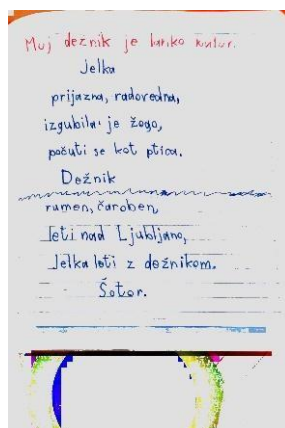 Moj dežnik je lahko
Jelka
prijazna, radovedna,
izgubila je žogo,
počuti se kot ptica.
Dežnik
rumen, čaroben,
leti nad Ljubljano,
Jelka leti z dežnikom.
Šotor.